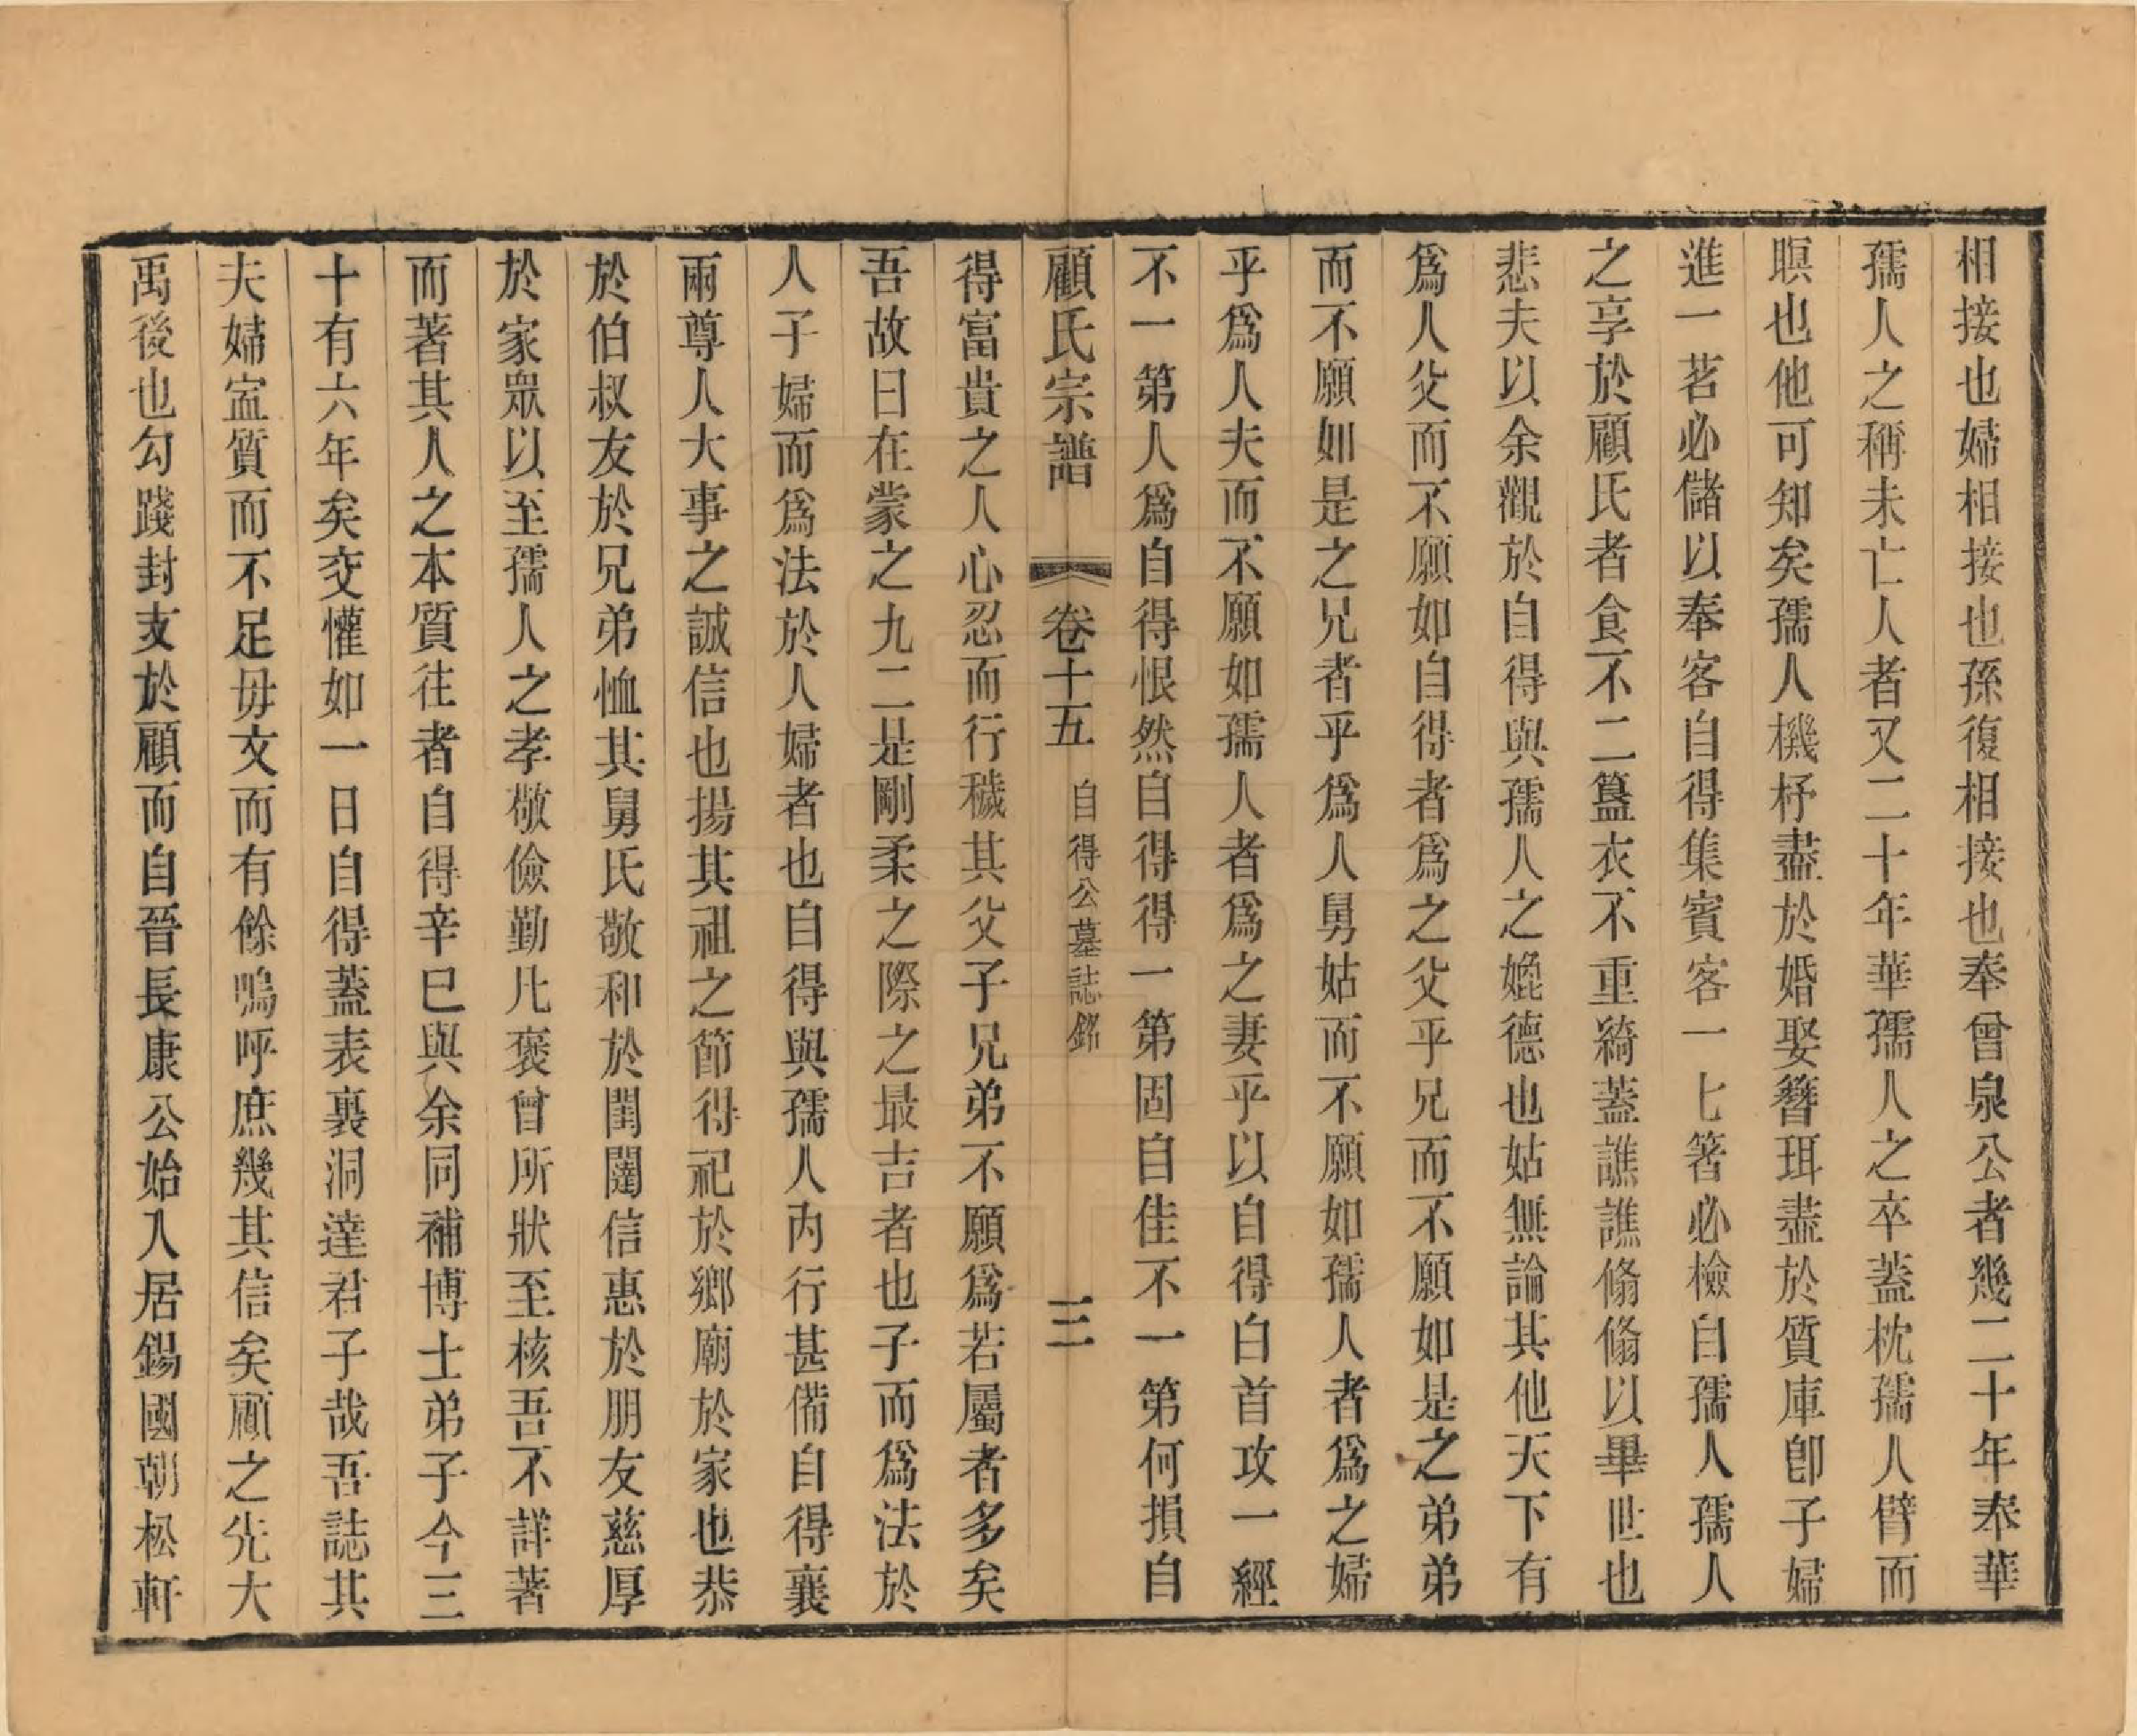 相接也婦相接也孫復相接也奉曾泉公者幾二十年奉華
孺人之稱未亡人者又二十年華孺人之卒蓋枕孺人臂而
瞑也他可知矣孺人機杼盡於婚娶簪珥盡於質庫卽子婦
進一茗必儲以奉客自得集賓客一匕箸必檢自孺人孺人
之享於顧氏者食不二簋衣不重綺蓋譙譙翛翛以畢世也
悲夫以余觀於自得與孺人之媲德也姑無論其他天下有
爲人父而不願如自得者爲之父乎兄而不願如是之弟弟
而不願如是之兄者乎爲人舅姑而不願如孺人者爲之婦
乎爲人夫而不願如孺人者爲之妻乎以自得白首攻一經
不一第人爲自得恨然自得得一第固自佳不一第何損自
顧氏宗譜 卷十五 自得公墓誌銘 三
得富貴之人心忍而行穢其父子兄弟不願爲若屬者多矣
吾故曰在蒙之九二是剛柔之際之最吉者也子而爲法於
人子婦而爲法於人婦者也自得與孺人內行甚備自得襄
兩尊人大事之誠信也揚其祖之節得祀於鄉廟於家也恭
於伯叔友於兄弟恤其舅氏敬和於閨闥信惠於朋友慈厚
於家眾以至孺人之孝敬儉勤凡褒曾所狀至核吾不詳著
而著其人之本質往者自得辛巳與余同補博士弟子今三
十有六年矣交懽如一日自得蓋表裏洞達君子哉吾誌其
夫婦寍質而不足毋文而有餘嗚呼庶幾其信矣顧之先大
禹後也勾踐封支於顧而自晉長康公始入居錫國朝松軒